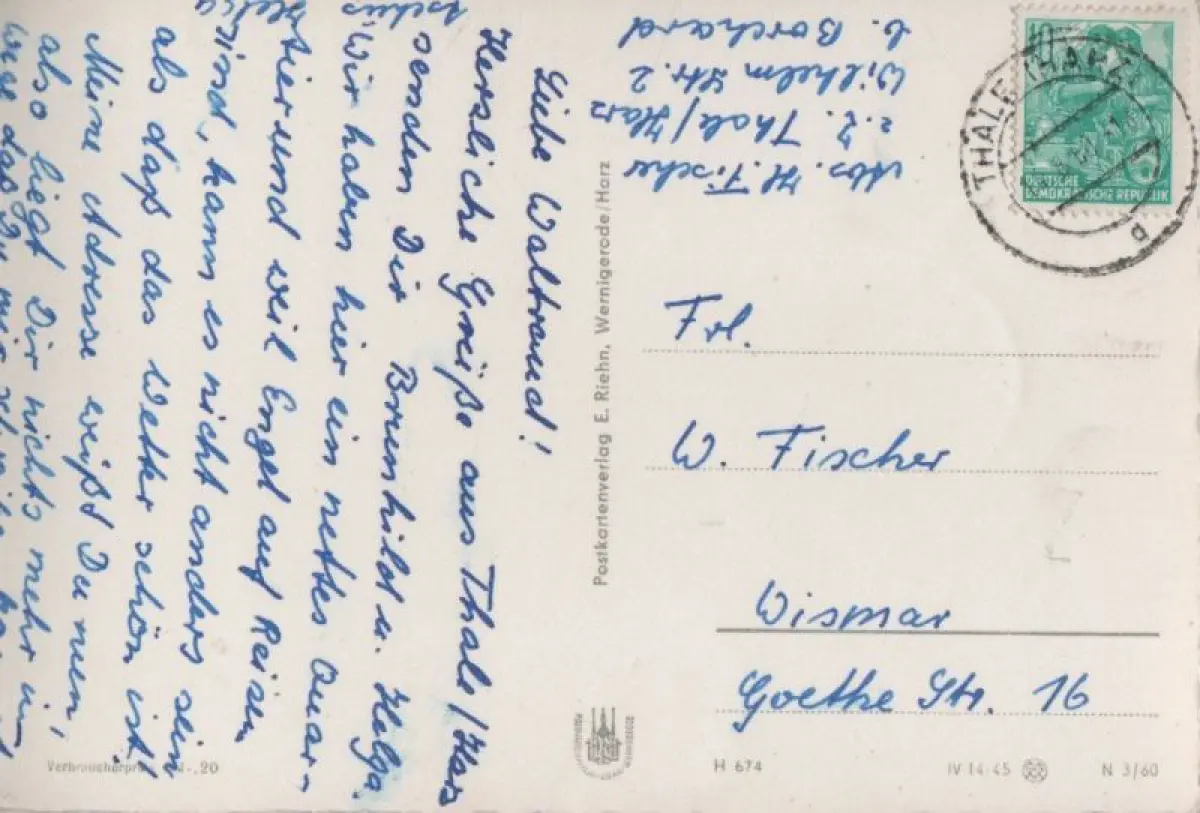 Liebe Waltraud!
Herzliche Grüße aus Thale/Harz
senden Dir Brunhild u. Helga.
Wir haben hier ein nettes Quar-
tier und weil Engel auf Reisen
sind, kann es nicht anders sein
als daß das Wetter schön ist.
Meine Adresse weißt Du nun,
also liegt Dir nichts mehr im
Wege das Du mir
Tschüs
Helga
Abs. H. Fischer
z. Z. Thale/Harz
Wilhelm Str. 2
b. Borchard
10
DEUTSCHE
DEMOKRATISCHE REPUBLIK
THALE (HARZ)
d
Frl.
W. Fischer
Wismar
Goethe Str. 16
Postkartenverlag E. Riehn, Wernigerode/Harz
H 674
IV 14-45
N 3/60